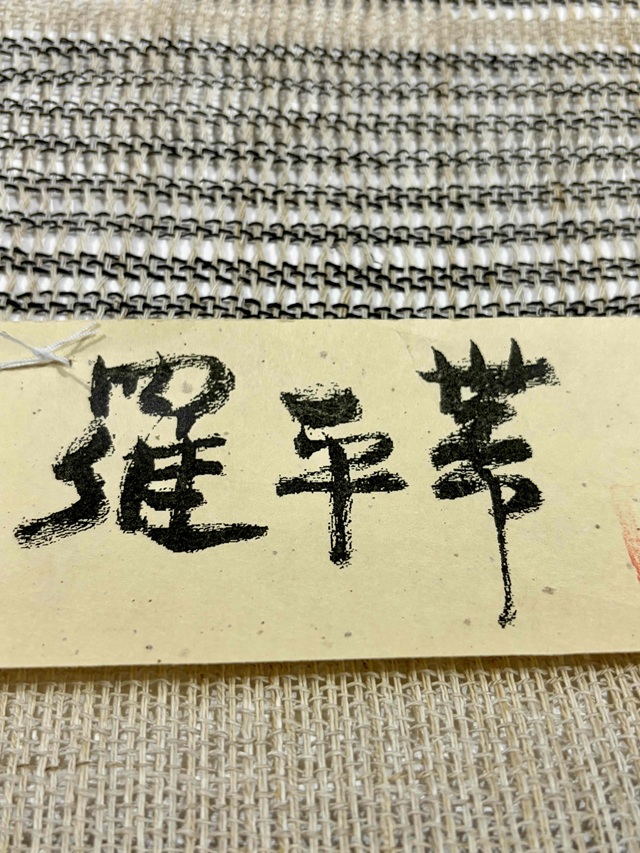 羅平帯